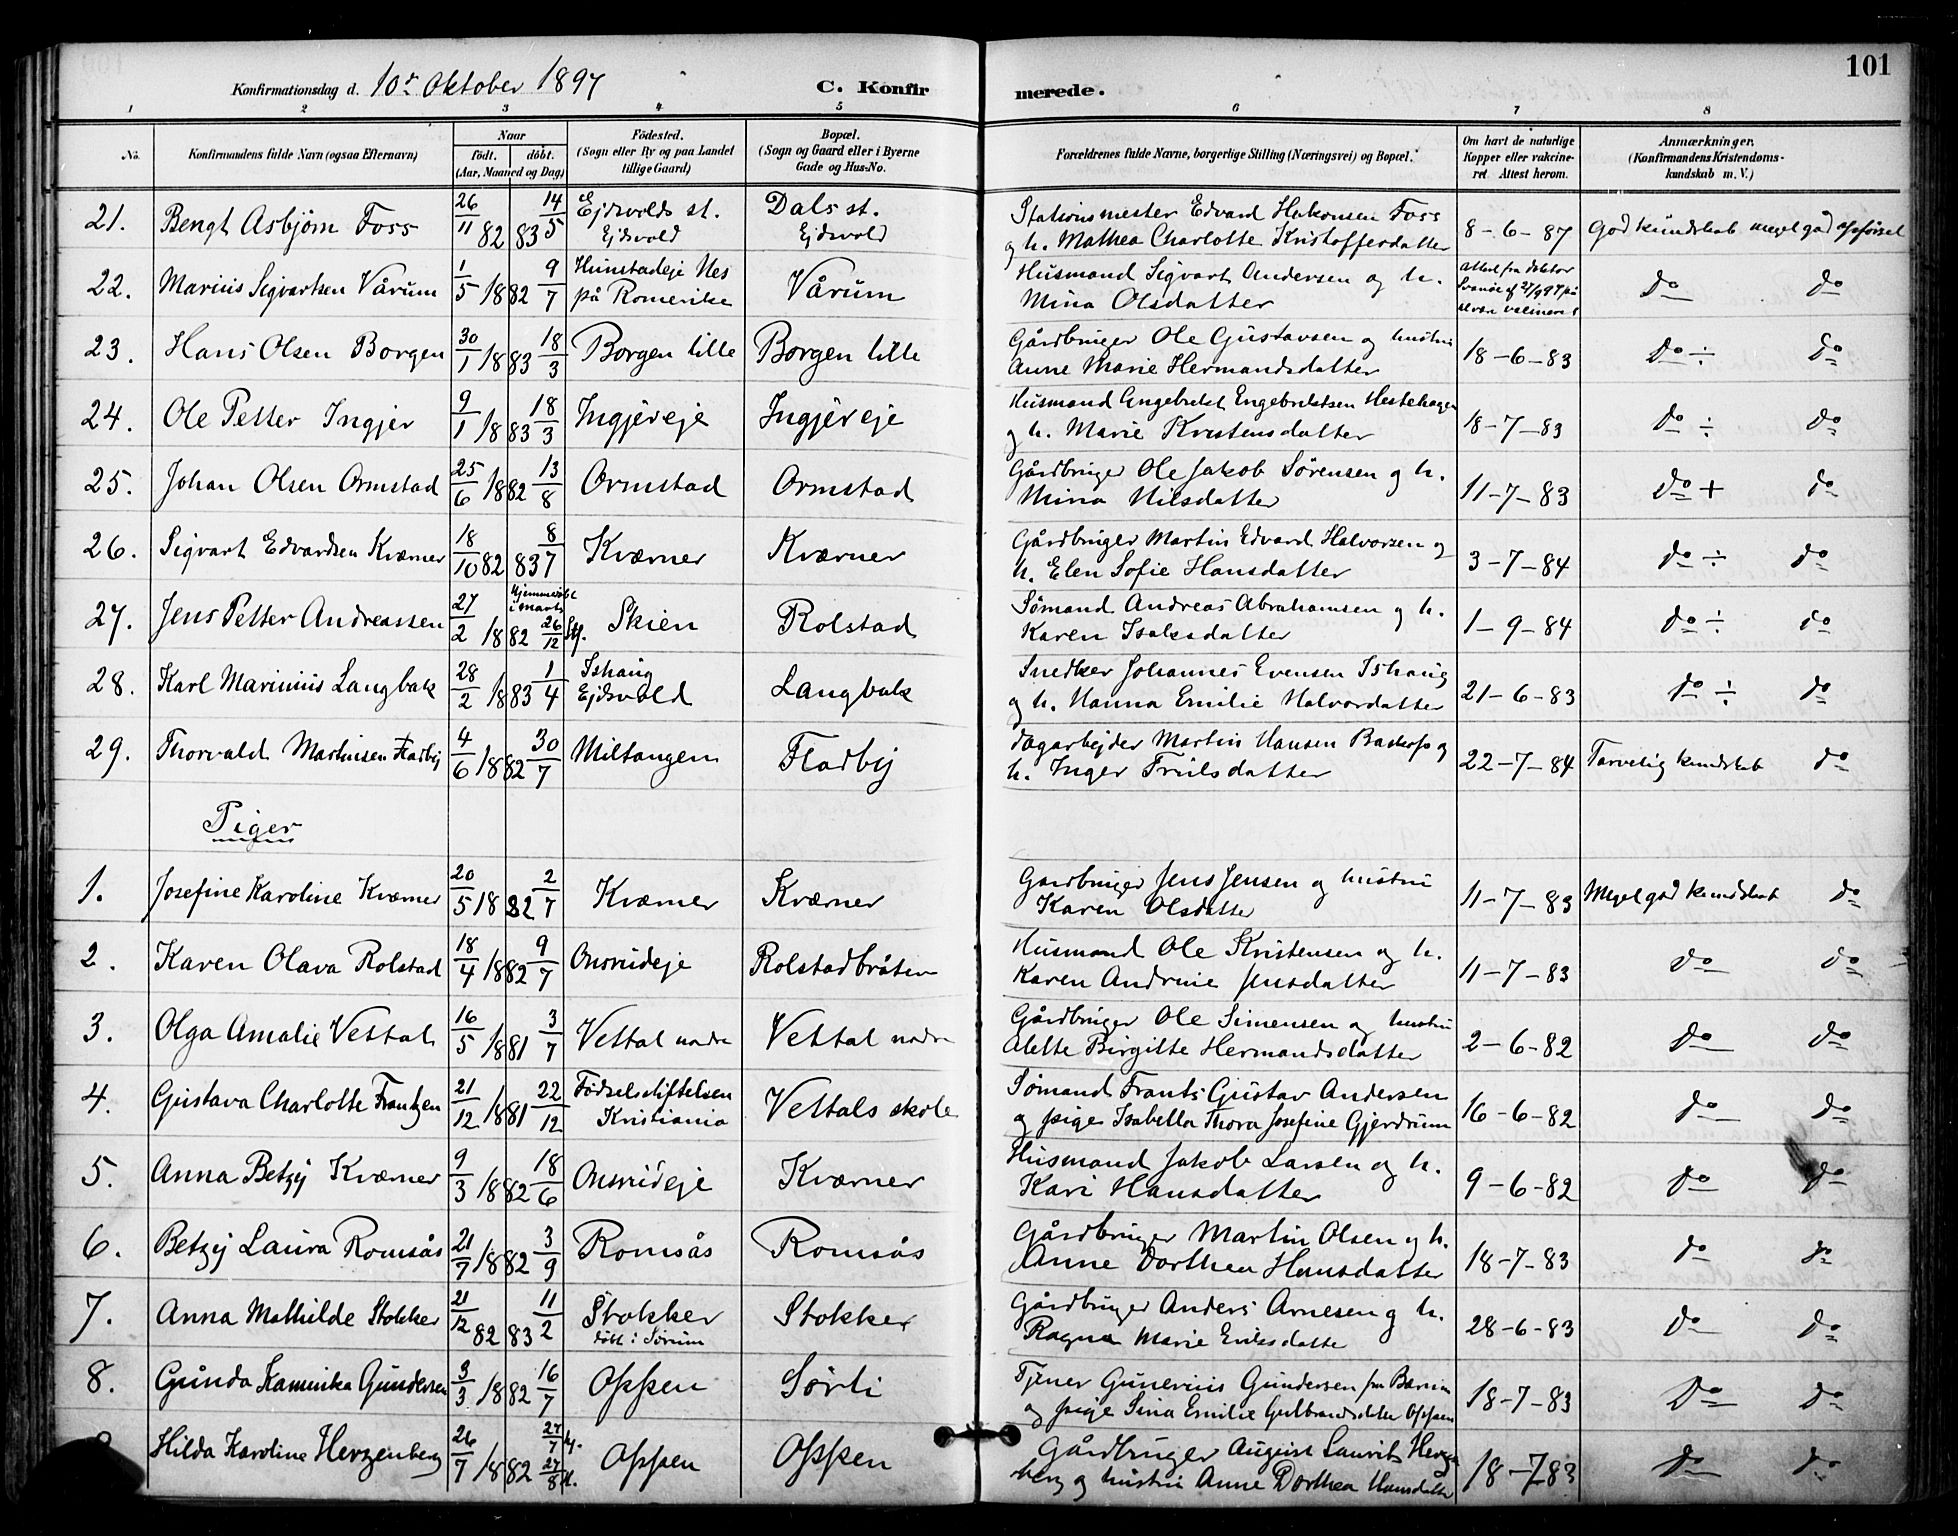 101
Konfirmationsdag d. 10de Oktober 1897
C. Konfirmerede.
1 2 3 4 5 6 7 8
No. | Konfirmandens fulde Navn (ogsaa Efternavn) | Naar födt. döbt. (Aar, Maaned og Dag) | Födested. (Sogn eller By og paa Landet tillige Gaard) | Bopæl. (Sogn og Gaard eller i Byerne Gade og Hus-No. | Forældrenes fulde Navne, borgerlige Stilling (Næringsvei) og Bopæl. | Om havt de naturlige Kopper eller vakcineret. Attest herom. | Anmærkninger. (Konfirmandens Kristendomskundskab m. V.)
21. Bengt Asbjørn Foss | 26/11 82 | 83 14/5 | Ejdsvolds st. Ejdsvold | Dals st. Ejdsvold | Stationsmester Edvard Hakonsen Foss og h. Mathea Charlotte Kristofferdatter | 8-6-87 | God kundskab meget god opførsel
22. Marius Sigvartsen Vårum | 1/5 1882 | 9/7 | Hunstadeje Nes på Romerike | Vårum | Husmand Sigvart Andersen og h. Mina Olsdatter | Attest fra doktor | do do
23. Hans Olsen Borgen | 30/1 1883 | 18/3 | Borgen lille | Borgen lille | Gårdbruger Ole Gustavsen og hustru Anne Marie Hermandsdatter | 18-6-83 | do ÷ do
24. Ole Petter Ingjer | 9/1 1883 | 18/3 | Ingjereje | Ingjereje | Husmand Engebrekt Engebrektsen Hestehagen og h. Marie Kristensdatter | 18-7-83 | do ÷ do
25. Johan Olsen Ormstad | 25/6 1882 | 13/8 | Ormstad | Ormstad | Gårdbruger Ole Jakob Sørensen og h. Mina Nilsdatter | 11-7-83 | do + do
26. Sigvart Edvardsen Kværner | 18/10 82 | 83 8/7 | Kværner | Kværner | Gårdbruger Martin Edvard Halvorsen og h. Elen Sofie Hansdatter | 3-7-84 | do ÷ do
27. Jens Petter Andreassen | 27/2 1882 | Hjemmedøbt i marts 26/12 Stf. | Skien | Rolstad | Sømand Andreas Abrahamsen og h. Karen Isaksdatter | 1-9-84 | do ÷ do
28. Karl Marinius Langbak | 28/2 1883 | 1/4 | Ishaug Ejdsvold | Langbak | Snedker Johannes Evensen Ishaug og h. Hanna Emilie Halvordatter | 21-6-83 | do ÷ do
29. Thorvald Martinsen Fladby | 4/6 1882 | 30/7 | Miltangen | Fladby | Dagarbejder Martin Hansen og h. Inger Trulsdatter | 22-7-84 | Tarvelig kundskab do
Piger
1. Josefine Karoline Kværner | 20/5 1882 | 2/7 | Kværner | Kværner | Gårdbruger Jens Jensen og hustru Karen Olsdatter | 11-7-83 | Meget god kundskab do
2. Karen Olava Rolstad | 18/4 1882 | 9/7 | Onsrudeje | Rolstadbråten | Husmand Ole Kristensen og h. Karen Andrine Jensdatter | 11-7-83 | do do
3. Olga Amalie Vestal | 16/5 1881 | 3/7 | Vettal nedre | Vettal nedre | Gårdbruger Ole Simensen og hustru Alette Birgitte Hermandsdatter | 2-6-82 | do do
4. Gustava Charlotte Frantzen | 21/12 1881 | 22/12 | Fødselsstiftelsen Kristiania | Vettals skole | Sømand Frants Gustav Andersen og pige Isabella Thora Josefine Gjerdrum | 16-6-82 | do do
5. Anna Betzy Kværner | 9/3 1882 | 18/6 | Onsrudeje | Kværner | Husmand Jakob Larsen og h. Kari Hansdatter | 9-6-82 | do do
6. Betzy Laura Romsås | 21/7 1882 | 3/9 | Romsås | Romsås | Gårdbruger Martin Olsen og h. Anne Dorthea Hansdatter | 18-7-83 | do do
7. Anna Mathilde Stokker | 21/12 82 | 83 11/2 | Stokker døbt i Sørum | Stokker | Gårdbruger Anders Arnesen og h. Ragna Marie Eriksdatter | 28-6-83 | do do
8. Gunda Kaminka Gundersen | 3/3 1882 | 16/7 | Oppen | Sørli | Tjener Gunerius Gundersen fra Bærum og pige Sina Emilie Gulbrandsdatter Oppen | 18-7-83 | do do
Hilda Karoline Herzenberg | 26/7 1882 | 27/7 H. 27/8 K. | Oppen | Oppen | Gårdbruger August Laurits Herzenberg og hustru Anne Dorthea Hansdatter | 18-7-83 | do do